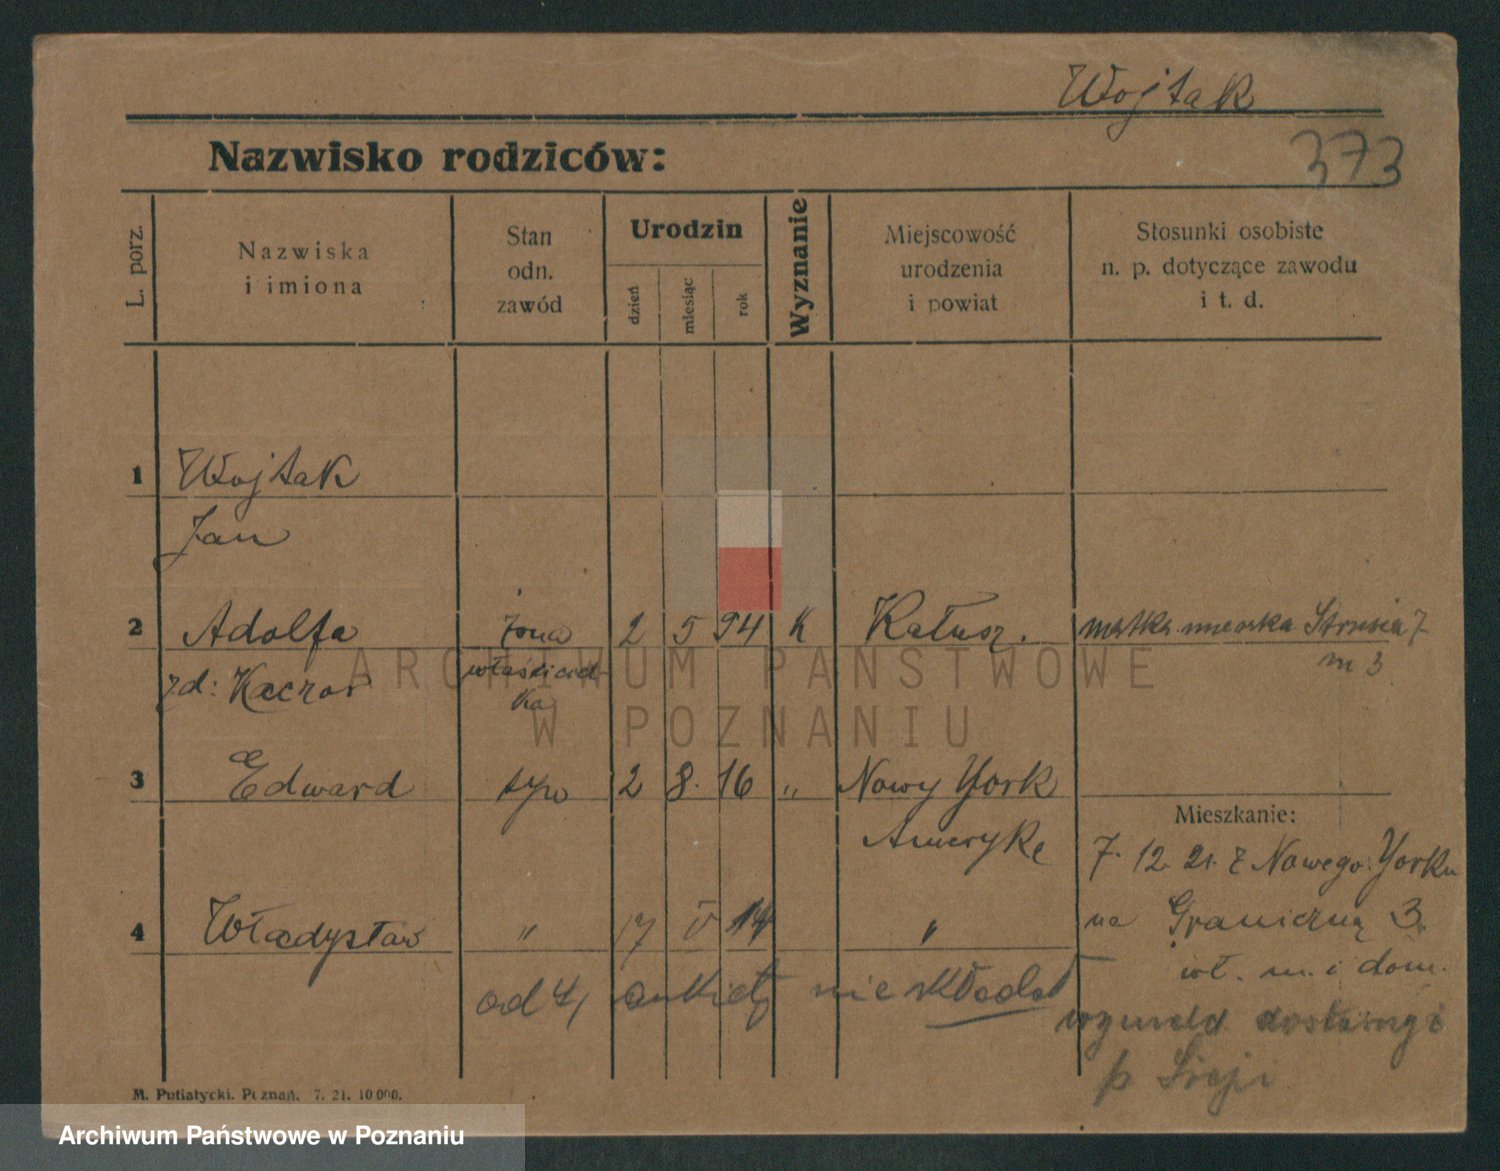 Wojtak
Nazwisko rodziców:
373
L. porz.
Nazwiska
i imiona
Stan
odn.
zawód
Urodzin
dzień
miesiąc
rok
Wyznanie
Miejscowość
urodzenia
i powiat
Stosunki osobiste
n. p. dotyczące zawodu
i t. d.
1 Wojtak
Jan
2 Adolfa żona 2 5 94 K Kałusz. matka mieszka Strusia 7
m 3
zd: Kaczor właściciel-
ka
ARCHIWUM PAŃSTWOWE
W POZNANIU
3 Edward syn 2 8. 16 " Nowy York
Ameryke
Mieszkanie:
7. 12. 21. z Nowego Yorku
4 Władysław " 17 V 14 "
na Graniczną 3.
wł. m. i dom.
od 4, ankiety nie składał
p
M. Putiatycki. Poznań. 7. 21. 10 000.
Archiwum Państwowe w Poznaniu